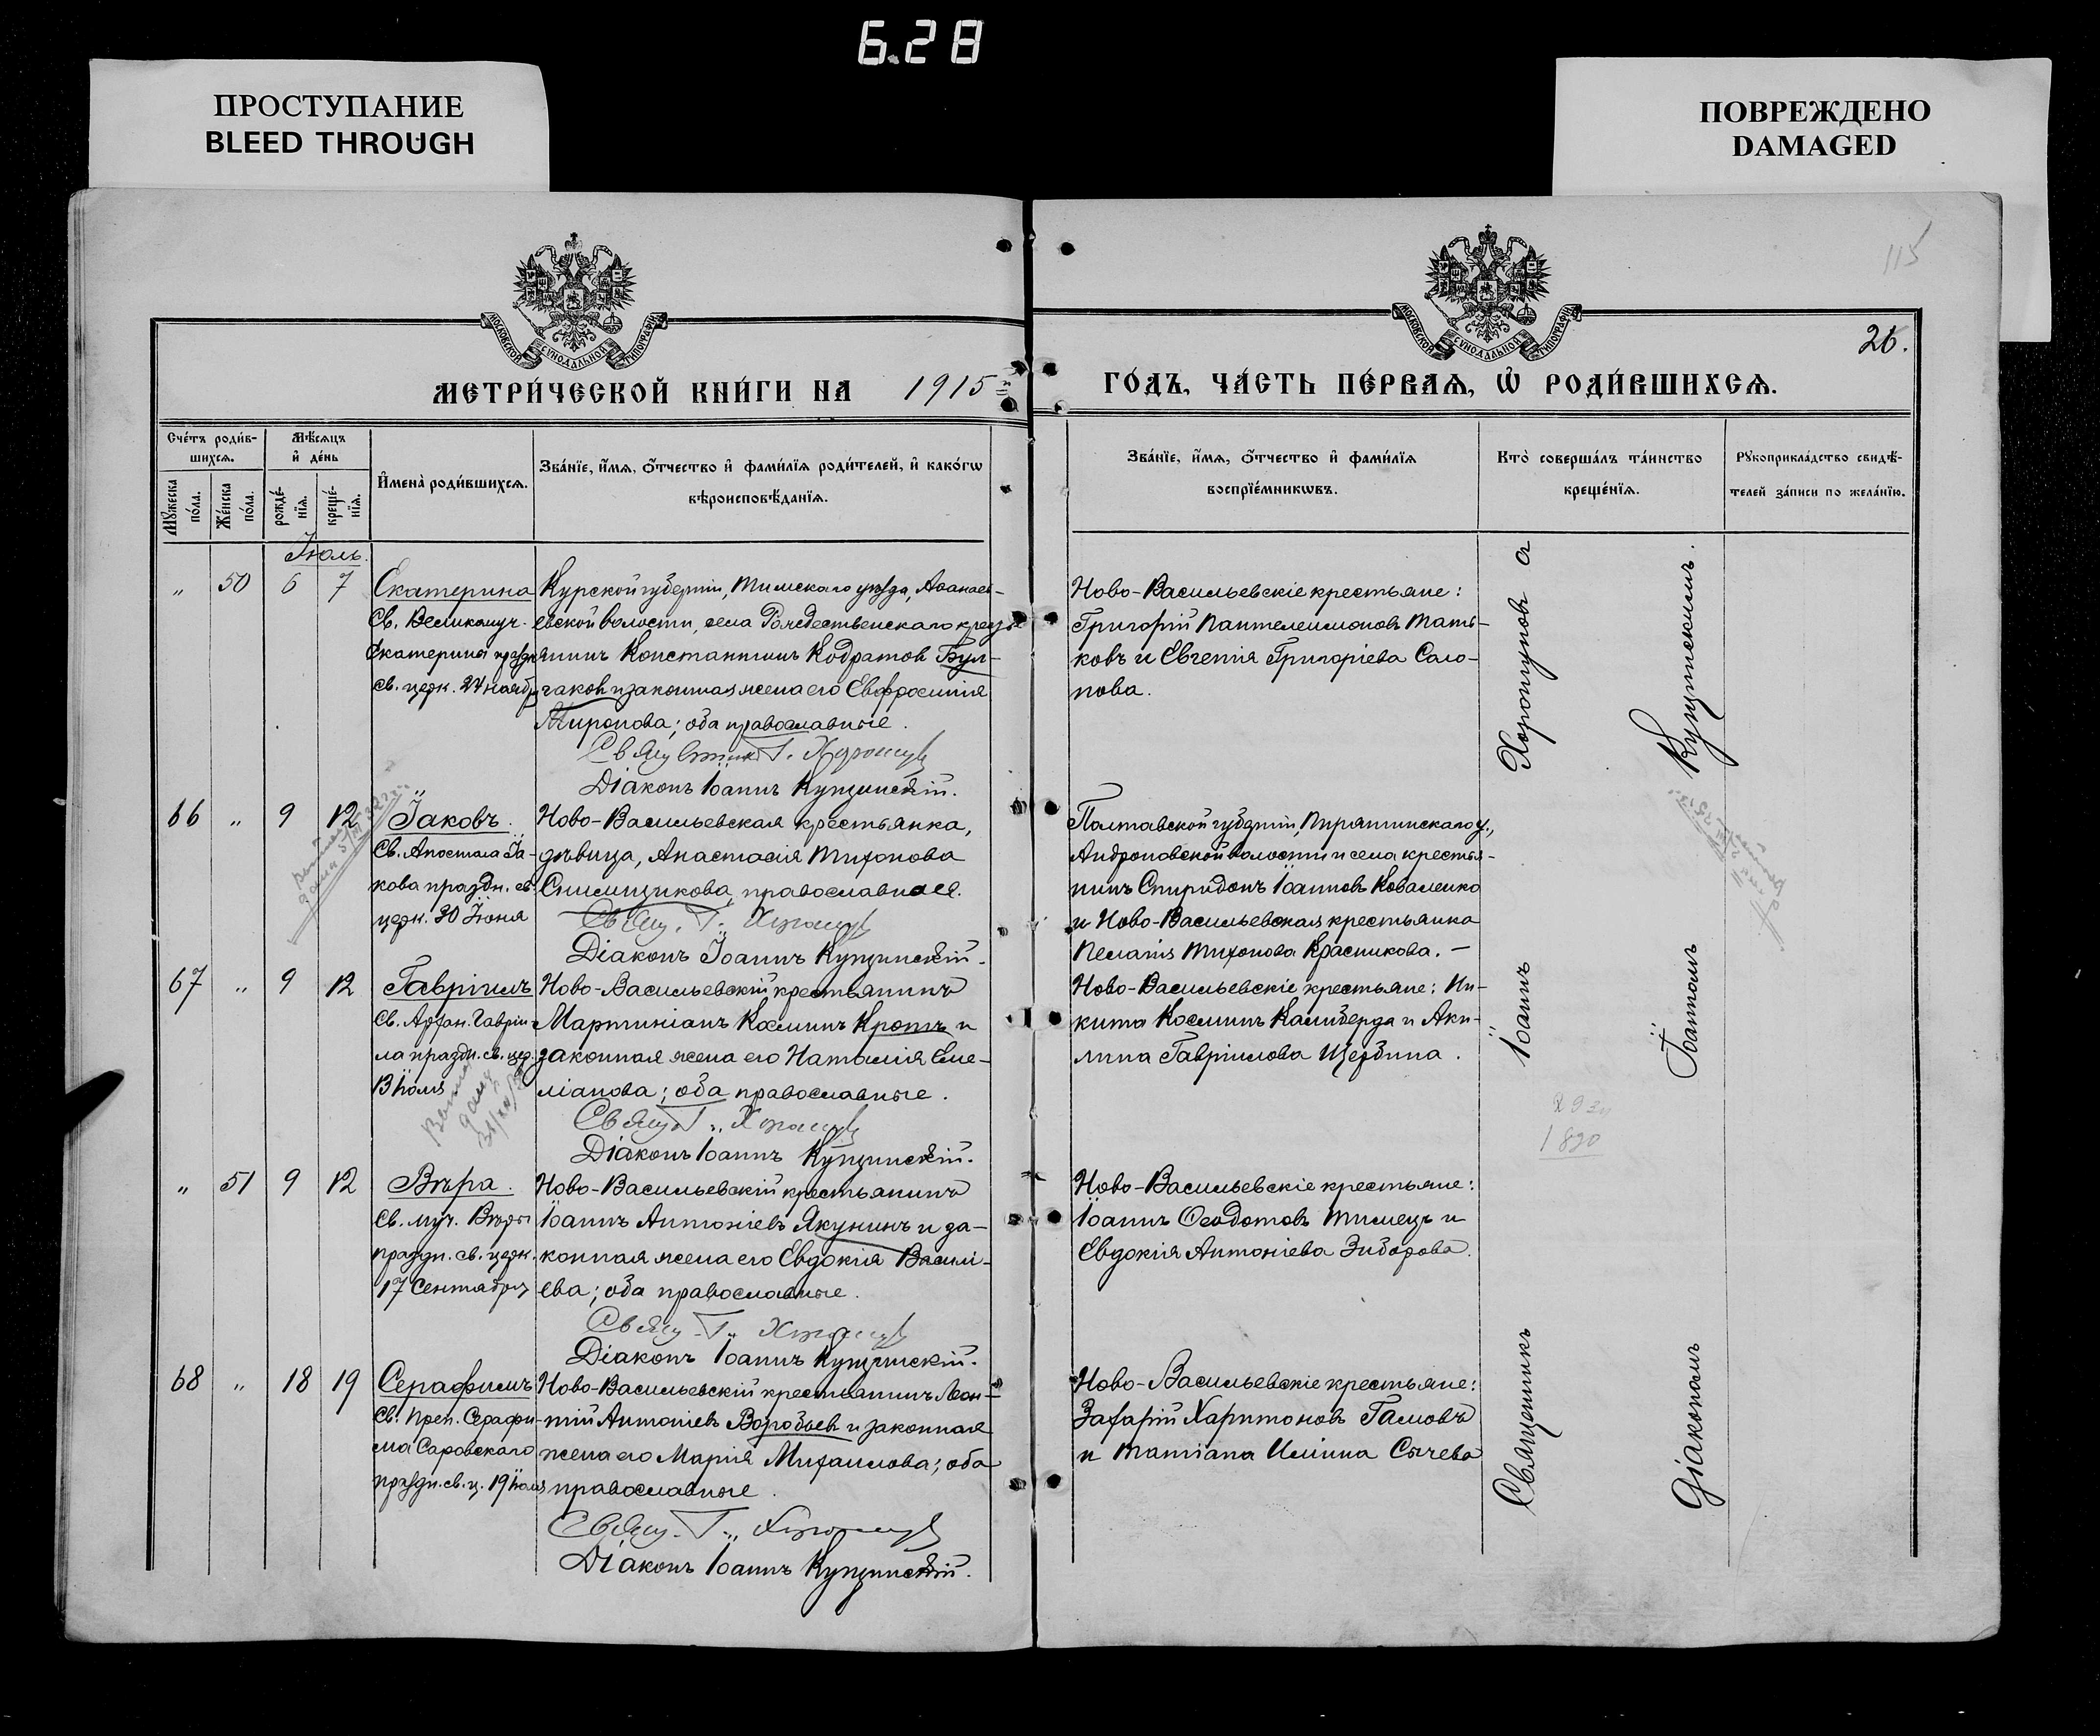 6.28
ПРОСТУПАНИЕ
BLEED THROUGH
ПОВРЕЖДЕНО
DAMAGED
115
26.
МОСКОВСКОЙ СѴНОДАЛЬНОЙ ТИПОГРАФІИ
МОСКОВСКОЙ СѴНОДАЛЬНОЙ ТИПОГРАФІИ
МЕТРИ́ЧЕСКОЙ КНИ́ГИ НА 1915
ГО́ДЪ, ЧА́СТЬ ПЕ́РВАѦ, Ѡ҆ РОДИ́ВШИХСѦ.
Сче́тъ роди́в-
шихсѧ.
Мꙋ́жеска по́ла.
Же́нска по́ла.
Мѣ́сѧцъ
и҆ де́нь
рожде́-
нїѧ.
креще́-
нїѧ.
И҆мена̀ роди́вшихсѧ.
Зва́нїе, и҆́мѧ, ѻ҆́тчество и҆ фами́лїѧ роди́телей, и҆ како́гѡ
вѣроисповѣ́данїѧ.
Зва́нїе, и҆́мѧ, ѻ҆́тчество и҆ фами́лїѧ
воспрїе́мникѡвъ.
Кто̀ соверша́лъ та́инство
креще́нїѧ.
Рꙋкоприкла́дство свидѣ́-
телей за́писи по жела́нїю.
Іюль.
„ 50 6 7
Екатерина
Св. Великомуч.
Екатерина праздн
св. церк. 24 ноябр
Курской губерніи, Тимскаго уѣзда, Аѳанась-
евской волости, села Рождественскаго кресть
янинъ Константинъ Кодратов Бул-
гаков и законная жена его Евфросинія
Миронова; оба православные.
Діаконъ Іоаннъ Купчинскій.
Ново-Васильевскіе крестьяне:
Григорій Пантелеимоновъ Тать-
ковъ и Евгенія Григоріева Сапо-
нова.
66 „ 9 12
Іаковъ.
Св. Апостола Іа-
кова праздн. св.
церк. 30 Іюня
Ново-Васильевская крестьянка,
дѣвица, Анастасія Тихонова
Снимщикова, православная.
Діаконъ Іоаннъ Купчинскій.
Полтавской губерніи, Пирятинскаго у.,
Андроновской волости и села крестья-
нинъ Спиридонъ Іоаннов Коваленко
и Ново-Васильевская крестьянка
Пелагія Тихонова Красникова. —
67 „ 9 12
Гавріилъ
Св. Архан. Гавріи-
ла праздн. св. цер.
13 Іюля
Ново-Васильевскій крестьянинъ
Мартиніанъ Косминъ Кротъ и
законная жена его Наталія Еме-
ліанова; оба православные.
Діаконъ Іоаннъ Купчинскій.
Ново-Васильевскіе крестьяне: Ни-
кита Косминъ Калиберда и Аки-
лина Гавріилова Щербина.
1820
„ 51 9 12
Вѣра.
Св. муч. Вѣры
праздн. св. церк.
17 Сентября
Ново-Васильевскій крестьянинъ
Іоаннъ Антоніевъ Якунинъ и за-
конная жена его Евдокія Васили-
ева; оба православные.
Діаконъ Іоаннъ Купчинскій.
Ново-Васильевскіе крестьяне:
Іоаннъ Ѳеодотовъ Тимецъ и
Евдокія Антоніева Зиборова.
68 „ 18 19
Серафимъ
Св. Преп. Серафи-
ма Саровскаго
праздн. св. ц. 19 Іюля
Ново-Васильевскій крестьянинъ Леон-
тій Антоніевъ Воробьев и законная
жена его Марія Михаилова; оба
православные.
Діаконъ Іоаннъ Купчинскій.
Ново-Васильевскіе крестьяне:
Захарій Харитоновъ Гамовъ
и Татіана Иліина Сычева
Священникъ Іоаннъ Хоропунов а
Діакономъ Іоанномъ Купчинскимъ.